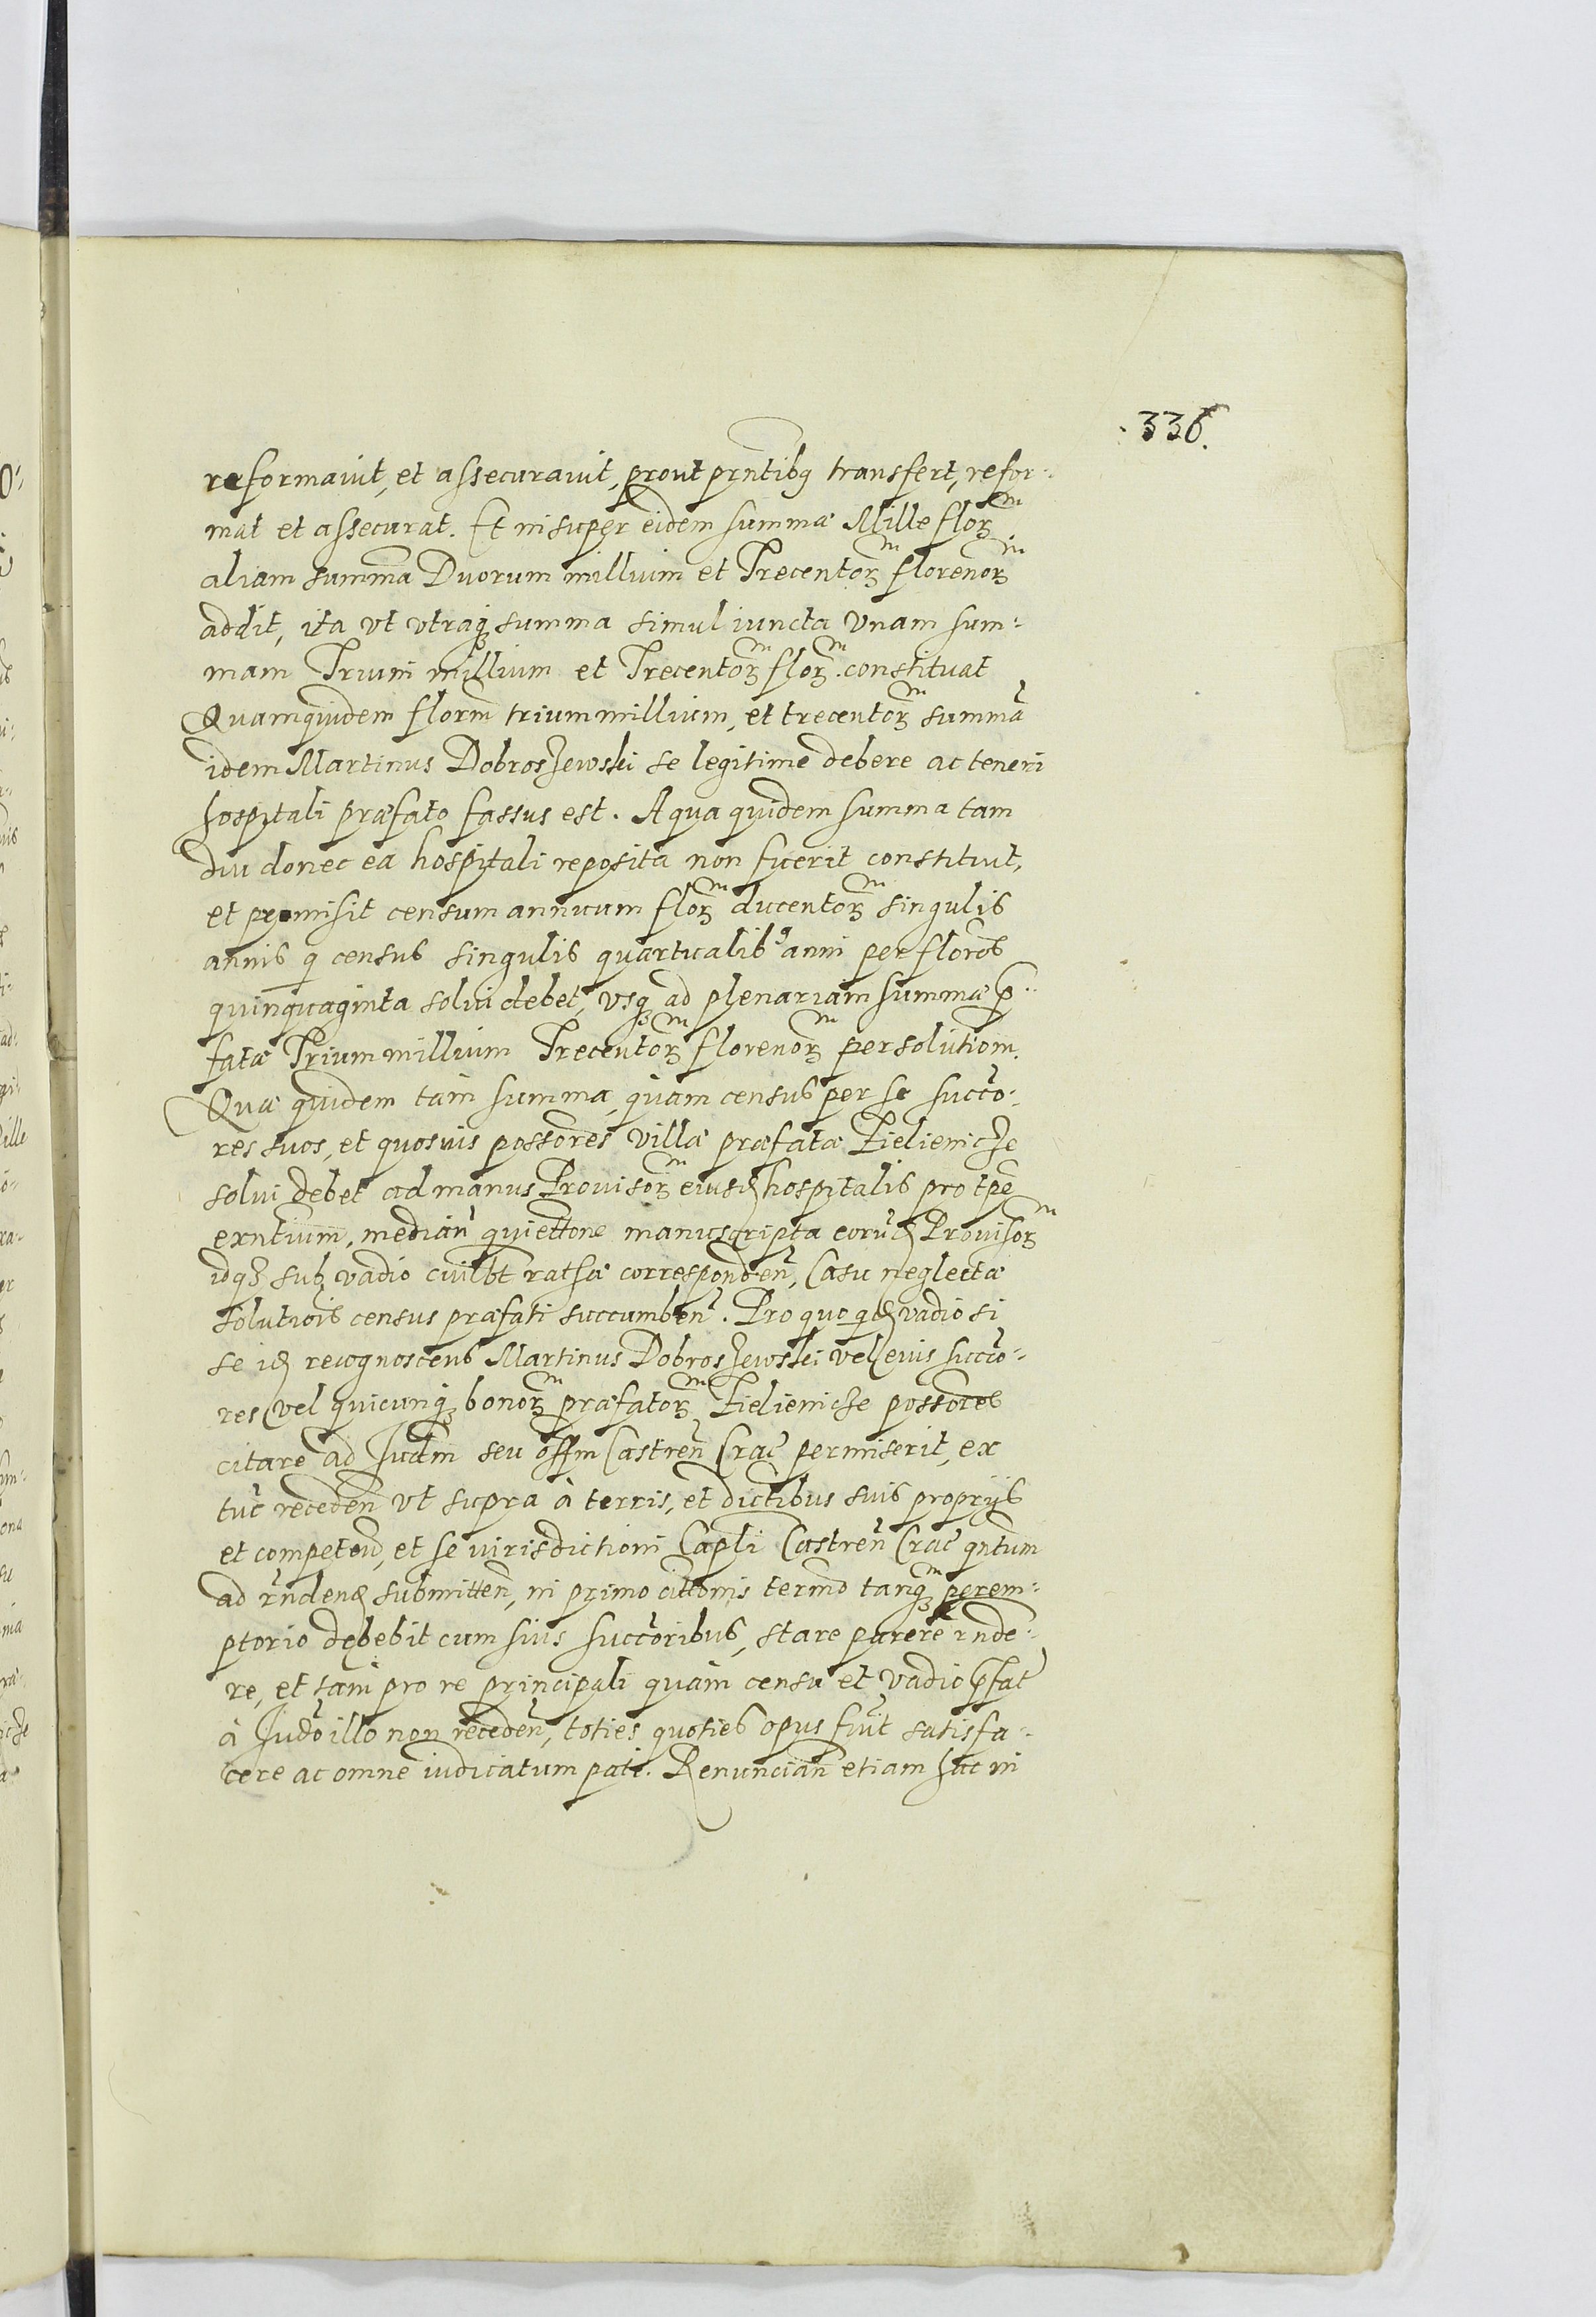 336.
reformauit, et assecurauit, prout pr̃ntibq transfert, refor-
mat et assecurat. Et insuper eidem summæ Mille florꝝ
aliam summã Duorum millium et Trecentorꝝ florenorꝝ
addit, ita vt vtraqꝫ summa simul iuncta Vnam sum:
mam Trium millium et Trecentorꝝ florꝝ. constituat
Quamquidem florm̃ trium millium, et trecentorꝝ summã
idem Martinus Dobroszewski se legitime debere ac teneri
hospitali præfato fassus est. A qua quidem summa tam
diu donec ea hospitali reposita non fuerit constituit,
et promisit censum annuum florꝝ ducentorꝝ singulis
annis q̃ census singulis quartualibꝰ anni per florõs
quinquaginta solui debet, vsqꝫ ad plenariam summæ p̃-
fatæ Trium millium Trecentorꝝ florenorꝝ persolutiom̃.
Quæ quidem tam summa, quam census per se succo-
res suos, et quosuis possores villæ præfatæ Zielienicze
solui debet ad manus Prouisorꝝ eiusd̃ hospitalis pro tp̃e
exñtium, median̄ quiettone manuscripta eorũd̃ Prouisorꝝ
idqꝫ sub vadio cuilbt ratæ corresponden̄, Casu neglectæ
solutiõis census præfati succumben̄. Pro quo qd̃ vadio si
se id̃ recognoscens Martinus Dobroszewski vel eius succo-
res vel quicunqꝫ bonorꝝ præfatorꝝ Zielienicze possores
citare ad Judm̃ seu offm̃ Castren̄ Crac̃ permiserit, ex
tũc receden̄ vt supra à terris, et dictibus suis proprijs
et competen̄, et se iurisdictioni Capli Castren̄ Crac̃ qñtum
ad r̃nden̄ submitten̄, in primo cittõnis termõ tanqꝫ perem-
ptorio debebit cum suis succoribus, stare parere r̃nde-
re, et tam pro re principali quam censu et vadio p̃fat̃
à Judõ illo non receden̄, toties quoties opus fuit̃ satisfa-
cere ac omne iudicatum pati. Renuncian̄ etiam hac in